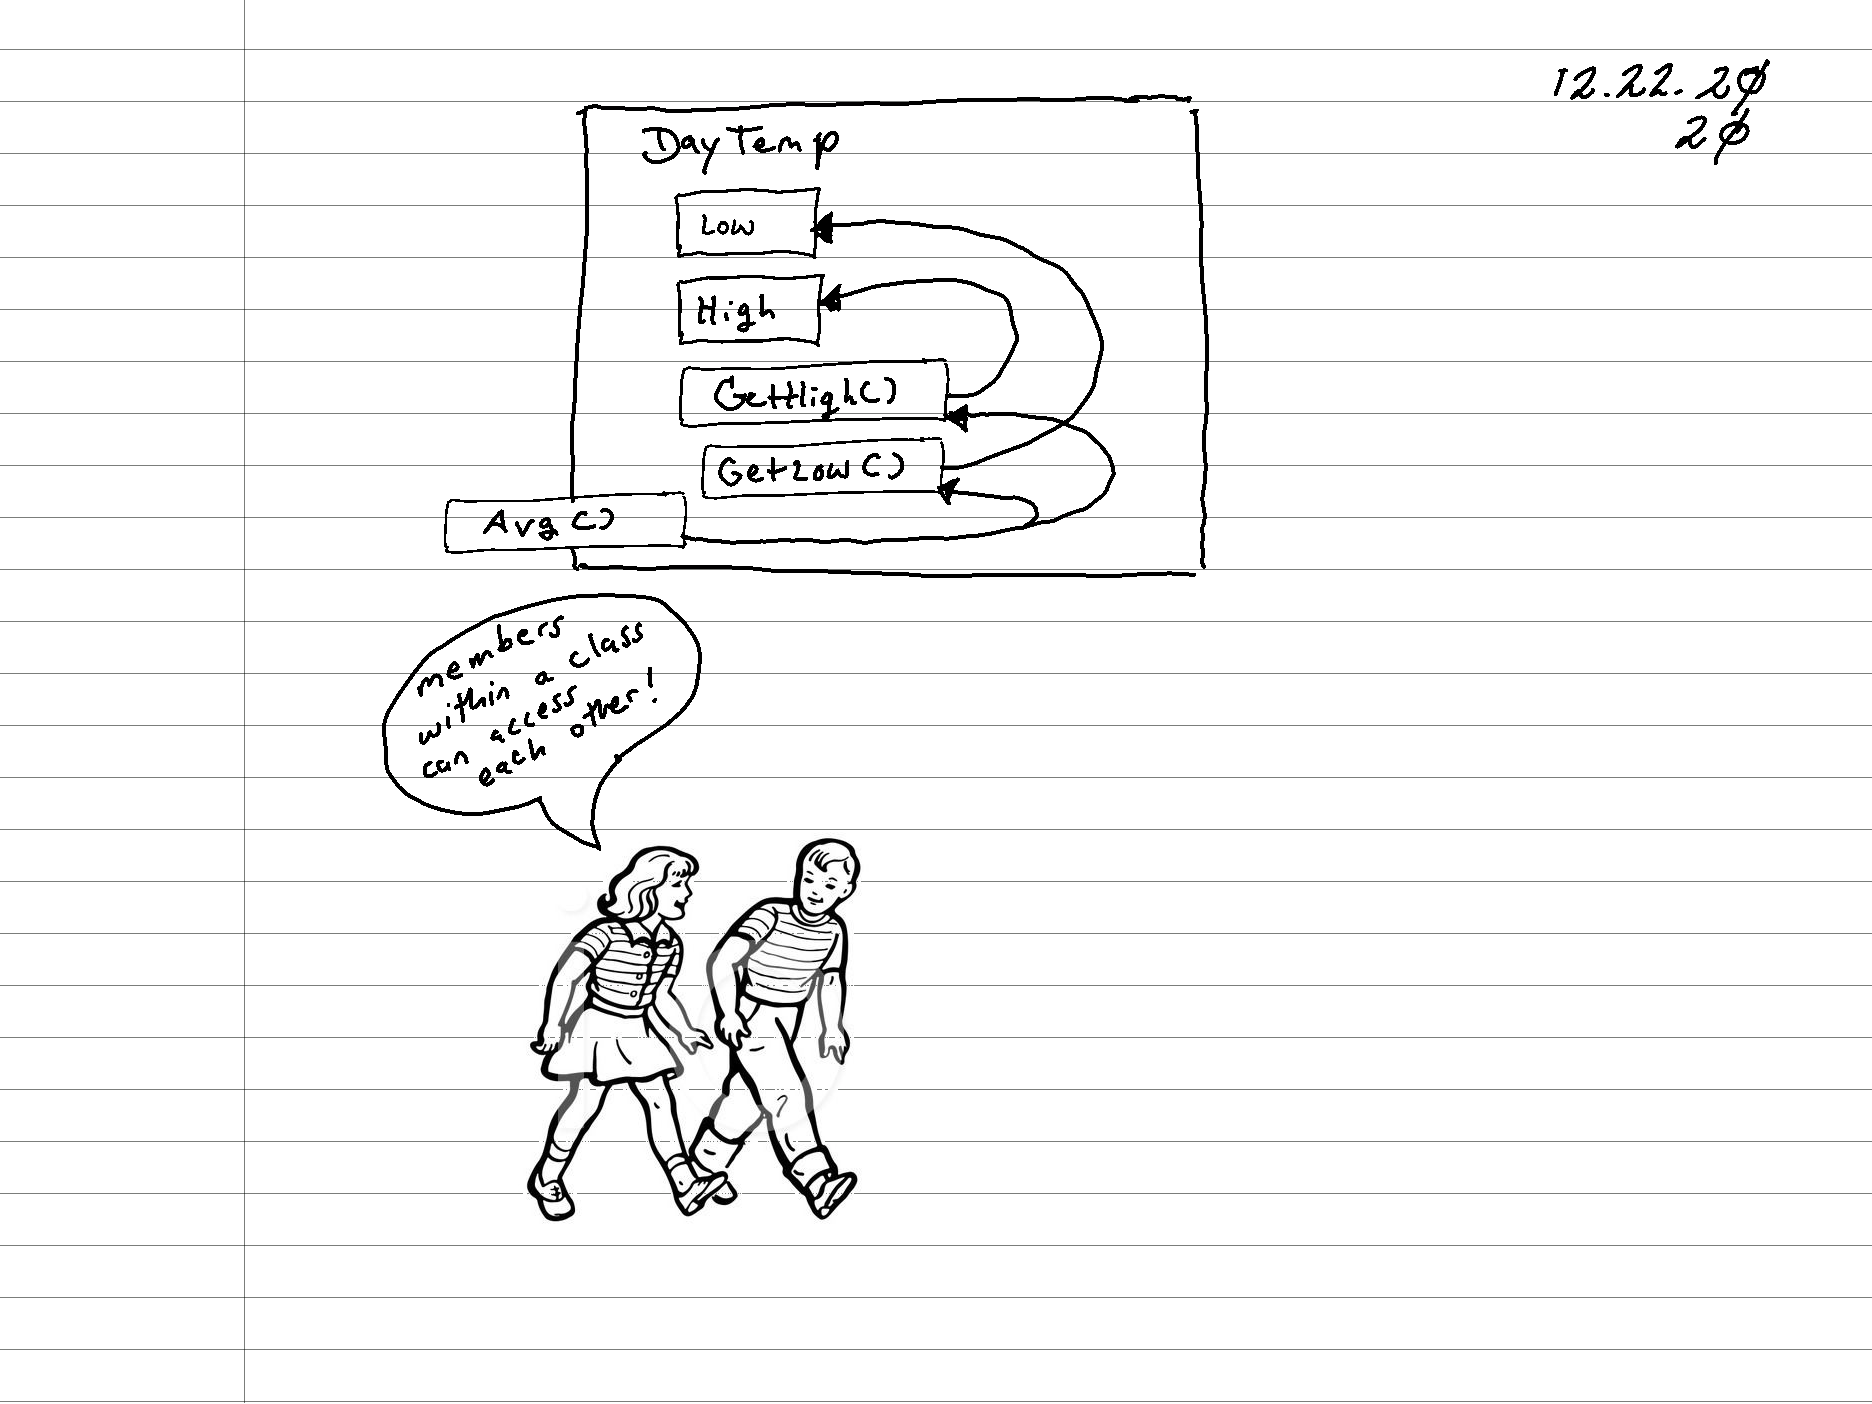 12.22.20
20
DayTemp
Low
High
GetHigh()
GetLow()
Avg()
members
within a class
can access
each other!